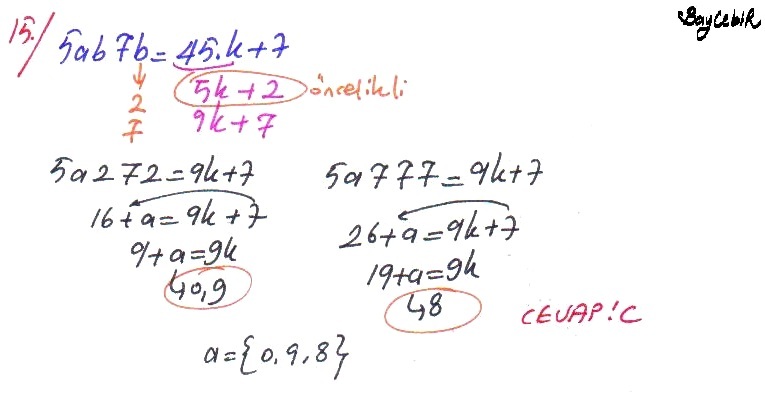 BayCebiR
15./ 5ab7b = 45.k+7
2 5k+2 öncelikli
7 9k+7
5a272=9k+7 5a777=9k+7
16+a=9k+7 26+a=9k+7
9+a=9k 19+a=9k
↳0,9 ↳8
CEVAP!C
a={0,9,8}